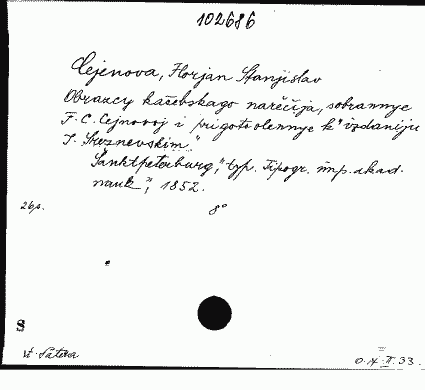 102686
Cejenova, Florjan Stanjislav
Obrazcy kašebskago narečija, sobrannye
F. C. Cejnovoj i prigotovlennye k" izdaniju
I. Sreznevskim."
Sanktpeterburg, typ. Tipogr. imp. akad.
nauk", 1852.
26 s. 8°
S
st. Patera
33.